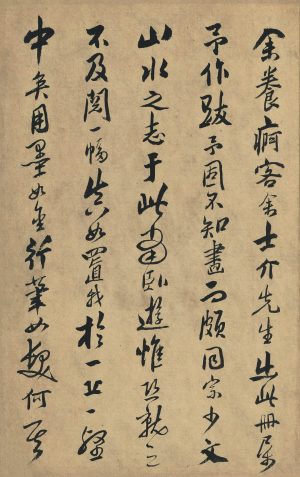 余養痾客舍士介先生出此冊屬
予作跋予固不知畫而頗同宗少文
山水之志于此當臥遊惟恐就之
不及閱一幀真如置我於一丘一壑
中矣用墨如金行筆如 何其